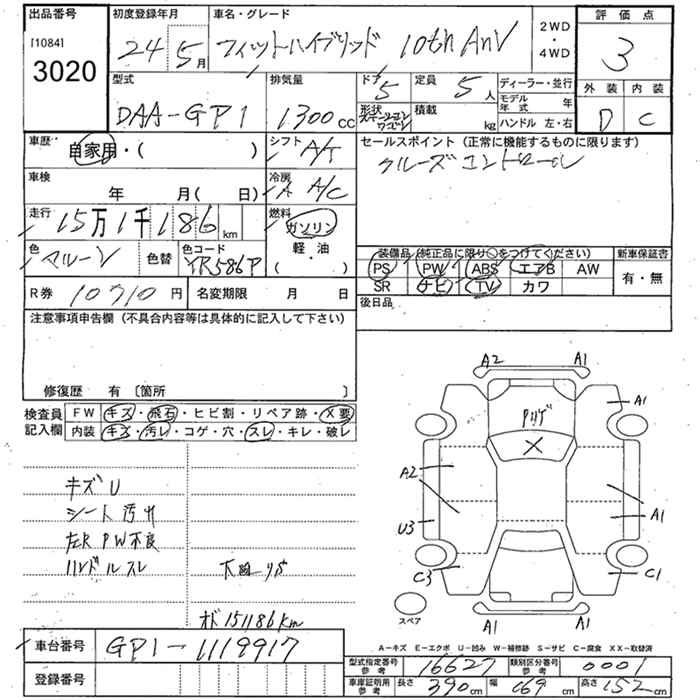 出品番号
[1084]
3020
初度登録年月
24 年 5月
車名・グレード
フィットハイブリッド 10th AnV
2WD
・
4WD
評価点
3
外装 内装
D C
型式
DAA-GP1
排気量
1300cc
ドア
5
定員
5人
形状
ステーションワゴン
積載
kg
ディーラー・並行
モデル年式 年
ハンドル 左・右
車歴
自家用・( )
シフト
A/T
セールスポイント (正常に機能するものに限ります)
クルーズコントロール
車検
年 月(日)
冷房
A A/C
走行
15万1千186km
燃料
ガソリン
軽・油
( )
色
マルーン
色替
色コード
YR586P
装備品 (純正品に限り○をつけてください)
新車保証書
PS PW ABS エアB AW
SR ナビ TV カワ
有・無
R券 10710円
名変期限 月 日
後日品
注意事項申告欄 (不具合内容等は具体的に記入して下さい)
修復歴 有 〔箇所 〕
検査員記入欄
FW キズ・飛石・ヒビ割・リペア跡・X要
内装 キズ・汚レ・コゲ・穴・スレ・キレ・破レ
キズU
シート汚れ
左R PW不良
ハンドルスレ
下廻サビ
オド151186km
A2 A1
A1
X
A2
A1
U3
C3
C1
A1 A1
スペア
A-キズ E-エクボ U-凹み W-補修跡 S-サビ C-腐食 XX-取替済
車台番号 GP1-1119917
登録番号
型式指定番号 参考 16627
類別区分番号 参考 0001
車庫証明用 参考 長さ 390cm 幅 169cm 高さ 152cm